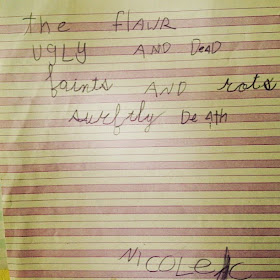 the flAwR
UGLY AND DeAD
faints AND rots
surftly DeAth
NiCOLe